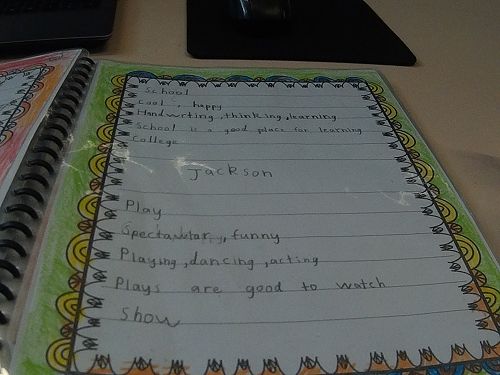 School
cool , happy
Handwrting, thinking, learning
School is a good place for learning
College
Jackson
Play
Spectawtar, funny
Playing, dancing, acting
Plays are good to watch
Show